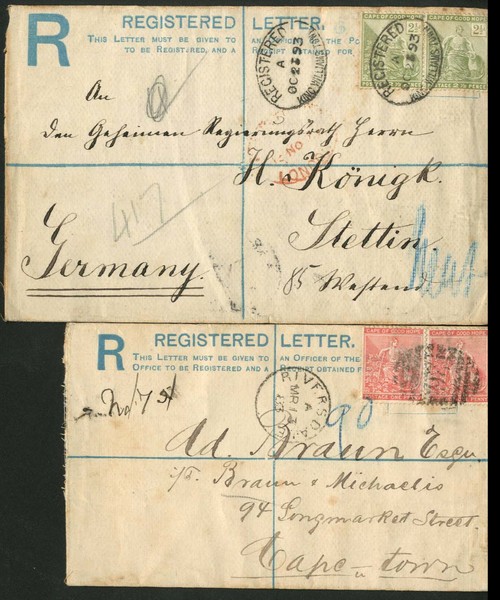 R REGISTERED LETTER.
THIS LETTER MUST BE GIVEN TO AN OFFICER OF THE
TO BE REGISTERED, AND A RECEIPT OBTAINED FOR
REGISTERED
A
OC 23 93
KING WILLIAMS TOWN
CAPE OF GOOD HOPE
REGISTERED
A
93
An
den Geheimen Regierungsrath Herrn
H. v. Königk.
Stettin.
85 Westend.
Germany.
417
R REGISTERED LETTER.
THIS LETTER MUST BE GIVEN TO AN OFFICER OF THE
OFFICE TO BE REGISTERED AND A RECEIPT OBTAINED FOR
CAPE OF GOOD HOPE
RIVERSDALE
A
MR 13
90
Ad. Braun Esqu
Braun & Michaelis
94 Longmarket Street.
Cape-town